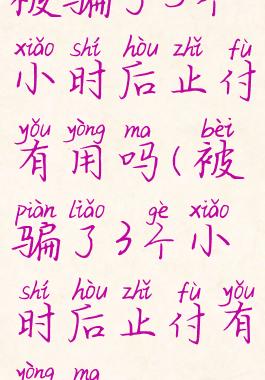 被骗了3个
xiǎo shí hòu zhǐ fù
小时后止付
yǒu yòng ma bèi
有用吗(被
piàn liǎo gè xiǎo
骗了3个小
shí hòu zhǐ fù yǒu
时后止付有
yòng ma